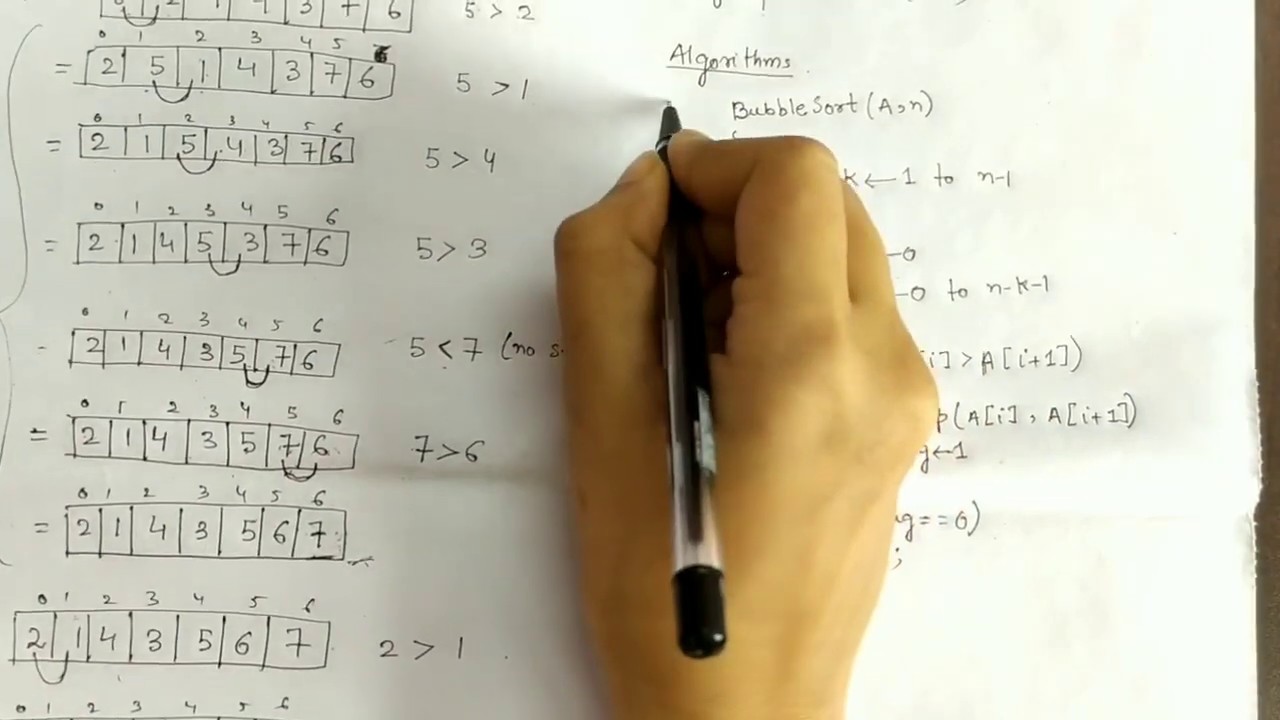 5 > 2
0 1 2 3 4 5 6
= 2 5 1 4 3 7 6 5 > 1
0 1 2 3 4 5 6
= 2 1 5 4 3 7 6 5 > 4
0 1 2 3 4 5 6
= 2 1 4 5 3 7 6 5 > 3
0 1 2 3 4 5 6
- 2 1 4 3 5 7 6 5 < 7 (no
0 1 2 3 4 5 6
= 2 1 4 3 5 7 6 7 > 6
0 1 2 3 4 5 6
= 2 1 4 3 5 6 7
0 1 2 3 4 5 6
2 1 4 3 5 6 7 2 > 1
0 1 2 3 4 5 6
Algorithms
BubbleSort (A,n)
{
k ← 1 to n-1
-0
-0 to n-k-1
[i] > A[i+1])
p(A[i], A[i+1])
g←1
g==0)
;